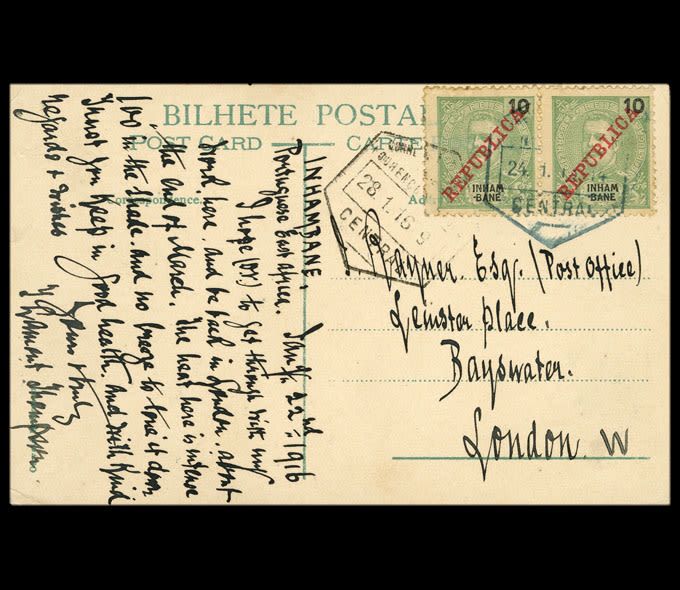 BILHETE POSTAL
POST CARD — CARTE
Correspondence.
10
REPUBLICA
INHAM
BANE
10
REPUBLICA
INHAM
BANE
24.1.
CENTRAL
28.1.16 9
CENTRAL
INHAMBANE.
Portuguese East Africa. Jany. 22nd 1916
I hope (DV) to get through with my
work here, and be back in London, about
the end of March. The heat here is intense
100° in the shade, and no breeze to tone it down
Trust you keep in good health, and with kind
regards & wishes
Yours truly
Rayner. Esq. (Post Office)
Leinster Place.
Bayswater.
London. W